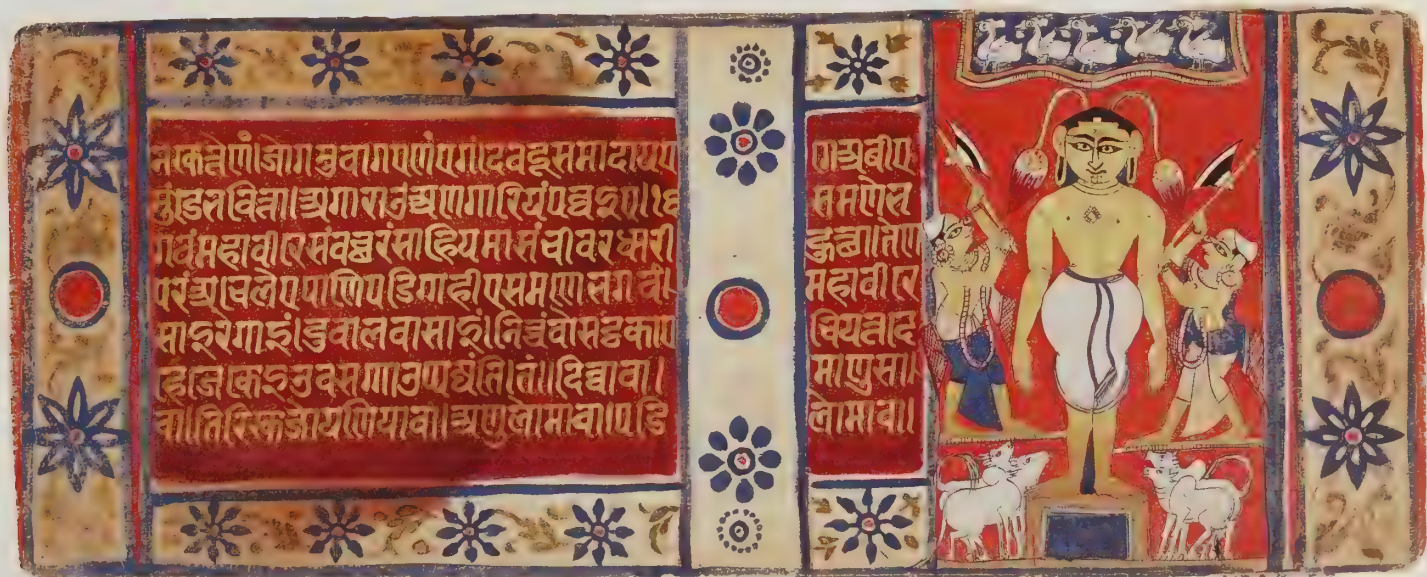 नक्खत्तेणं।जोगमुवागएणं एगं देवदूसमादाय ए गे अबीए
मुंडे भवित्ता।अगाराउ अणगारियं पव्वइए॥ समणे भ
गवं महावीरे संवच्छरसाहियमासं चीवरधारी हुत्था।तेण
परं अचेलए पाणिपडिग्गहीए समणे भगवं। महावीरे
साइरेगाइं।दुवालसवासाइं।निच्चं वोसट्ठकाए चियत्तदे
हे जे केइ उवसग्गा उप्पज्जंति।तं।दिव्वा वा। माणुसा।
वा।तिरिक्खजोणिया वा।अणुलोमा वा।पडि लोमा वा।